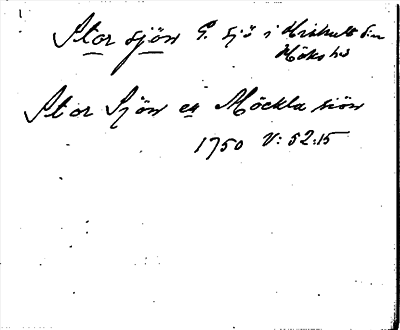 Stor sjön G. sjö i Hishult sn
Höks hd
Stor Sjön el Möckla siön
1750 V: 52:15